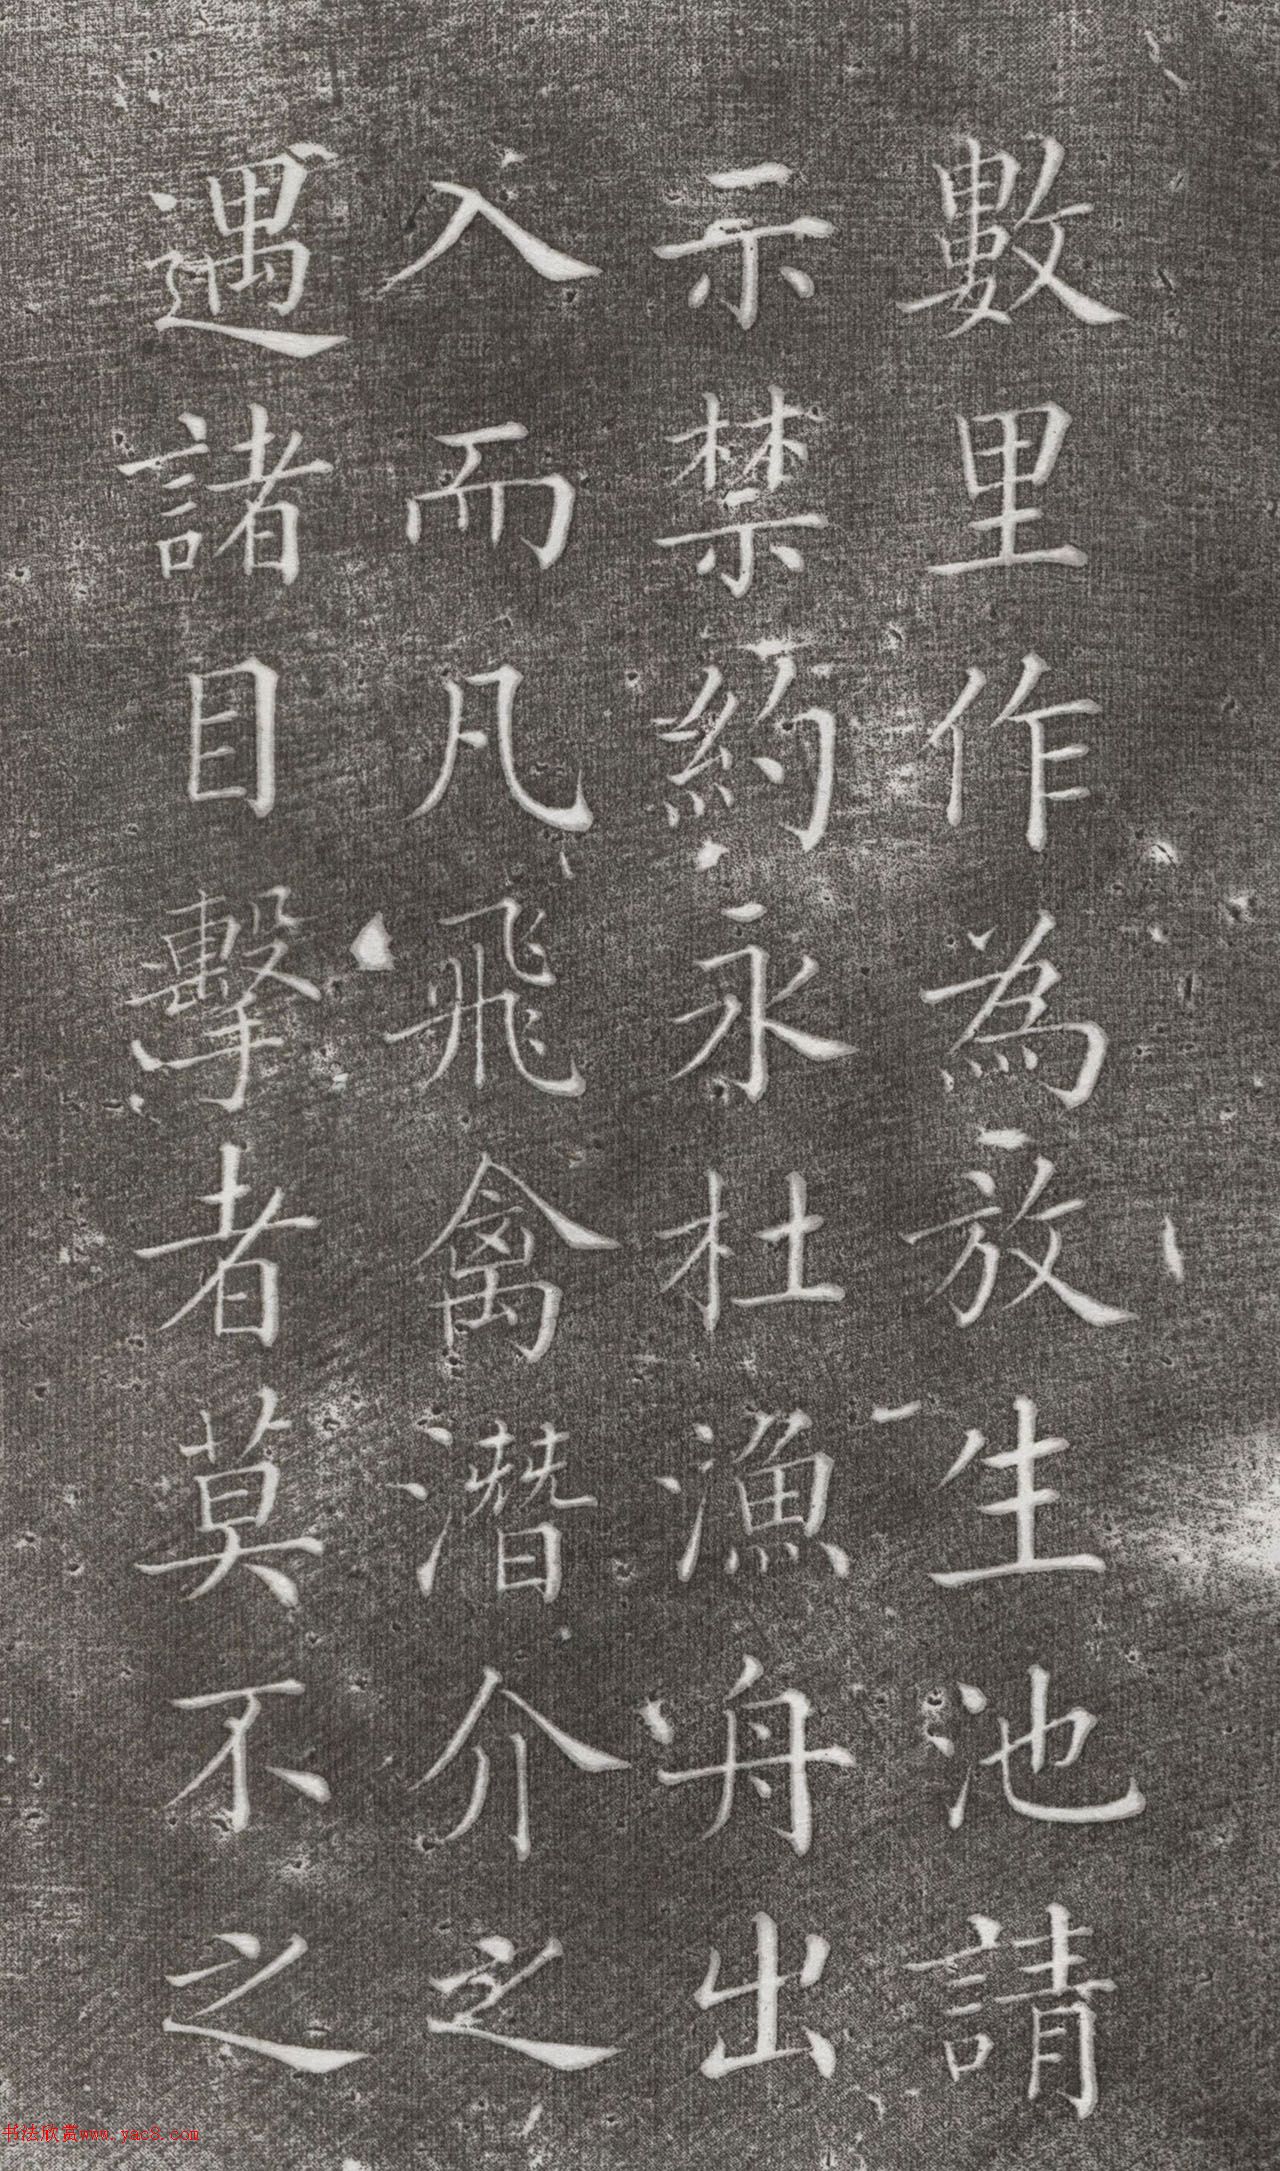 數里作為放生池請
示禁約永杜漁舟出
入而凡飛禽潛介之
遇諸目擊者莫不之
书法欣赏www.yac8.com